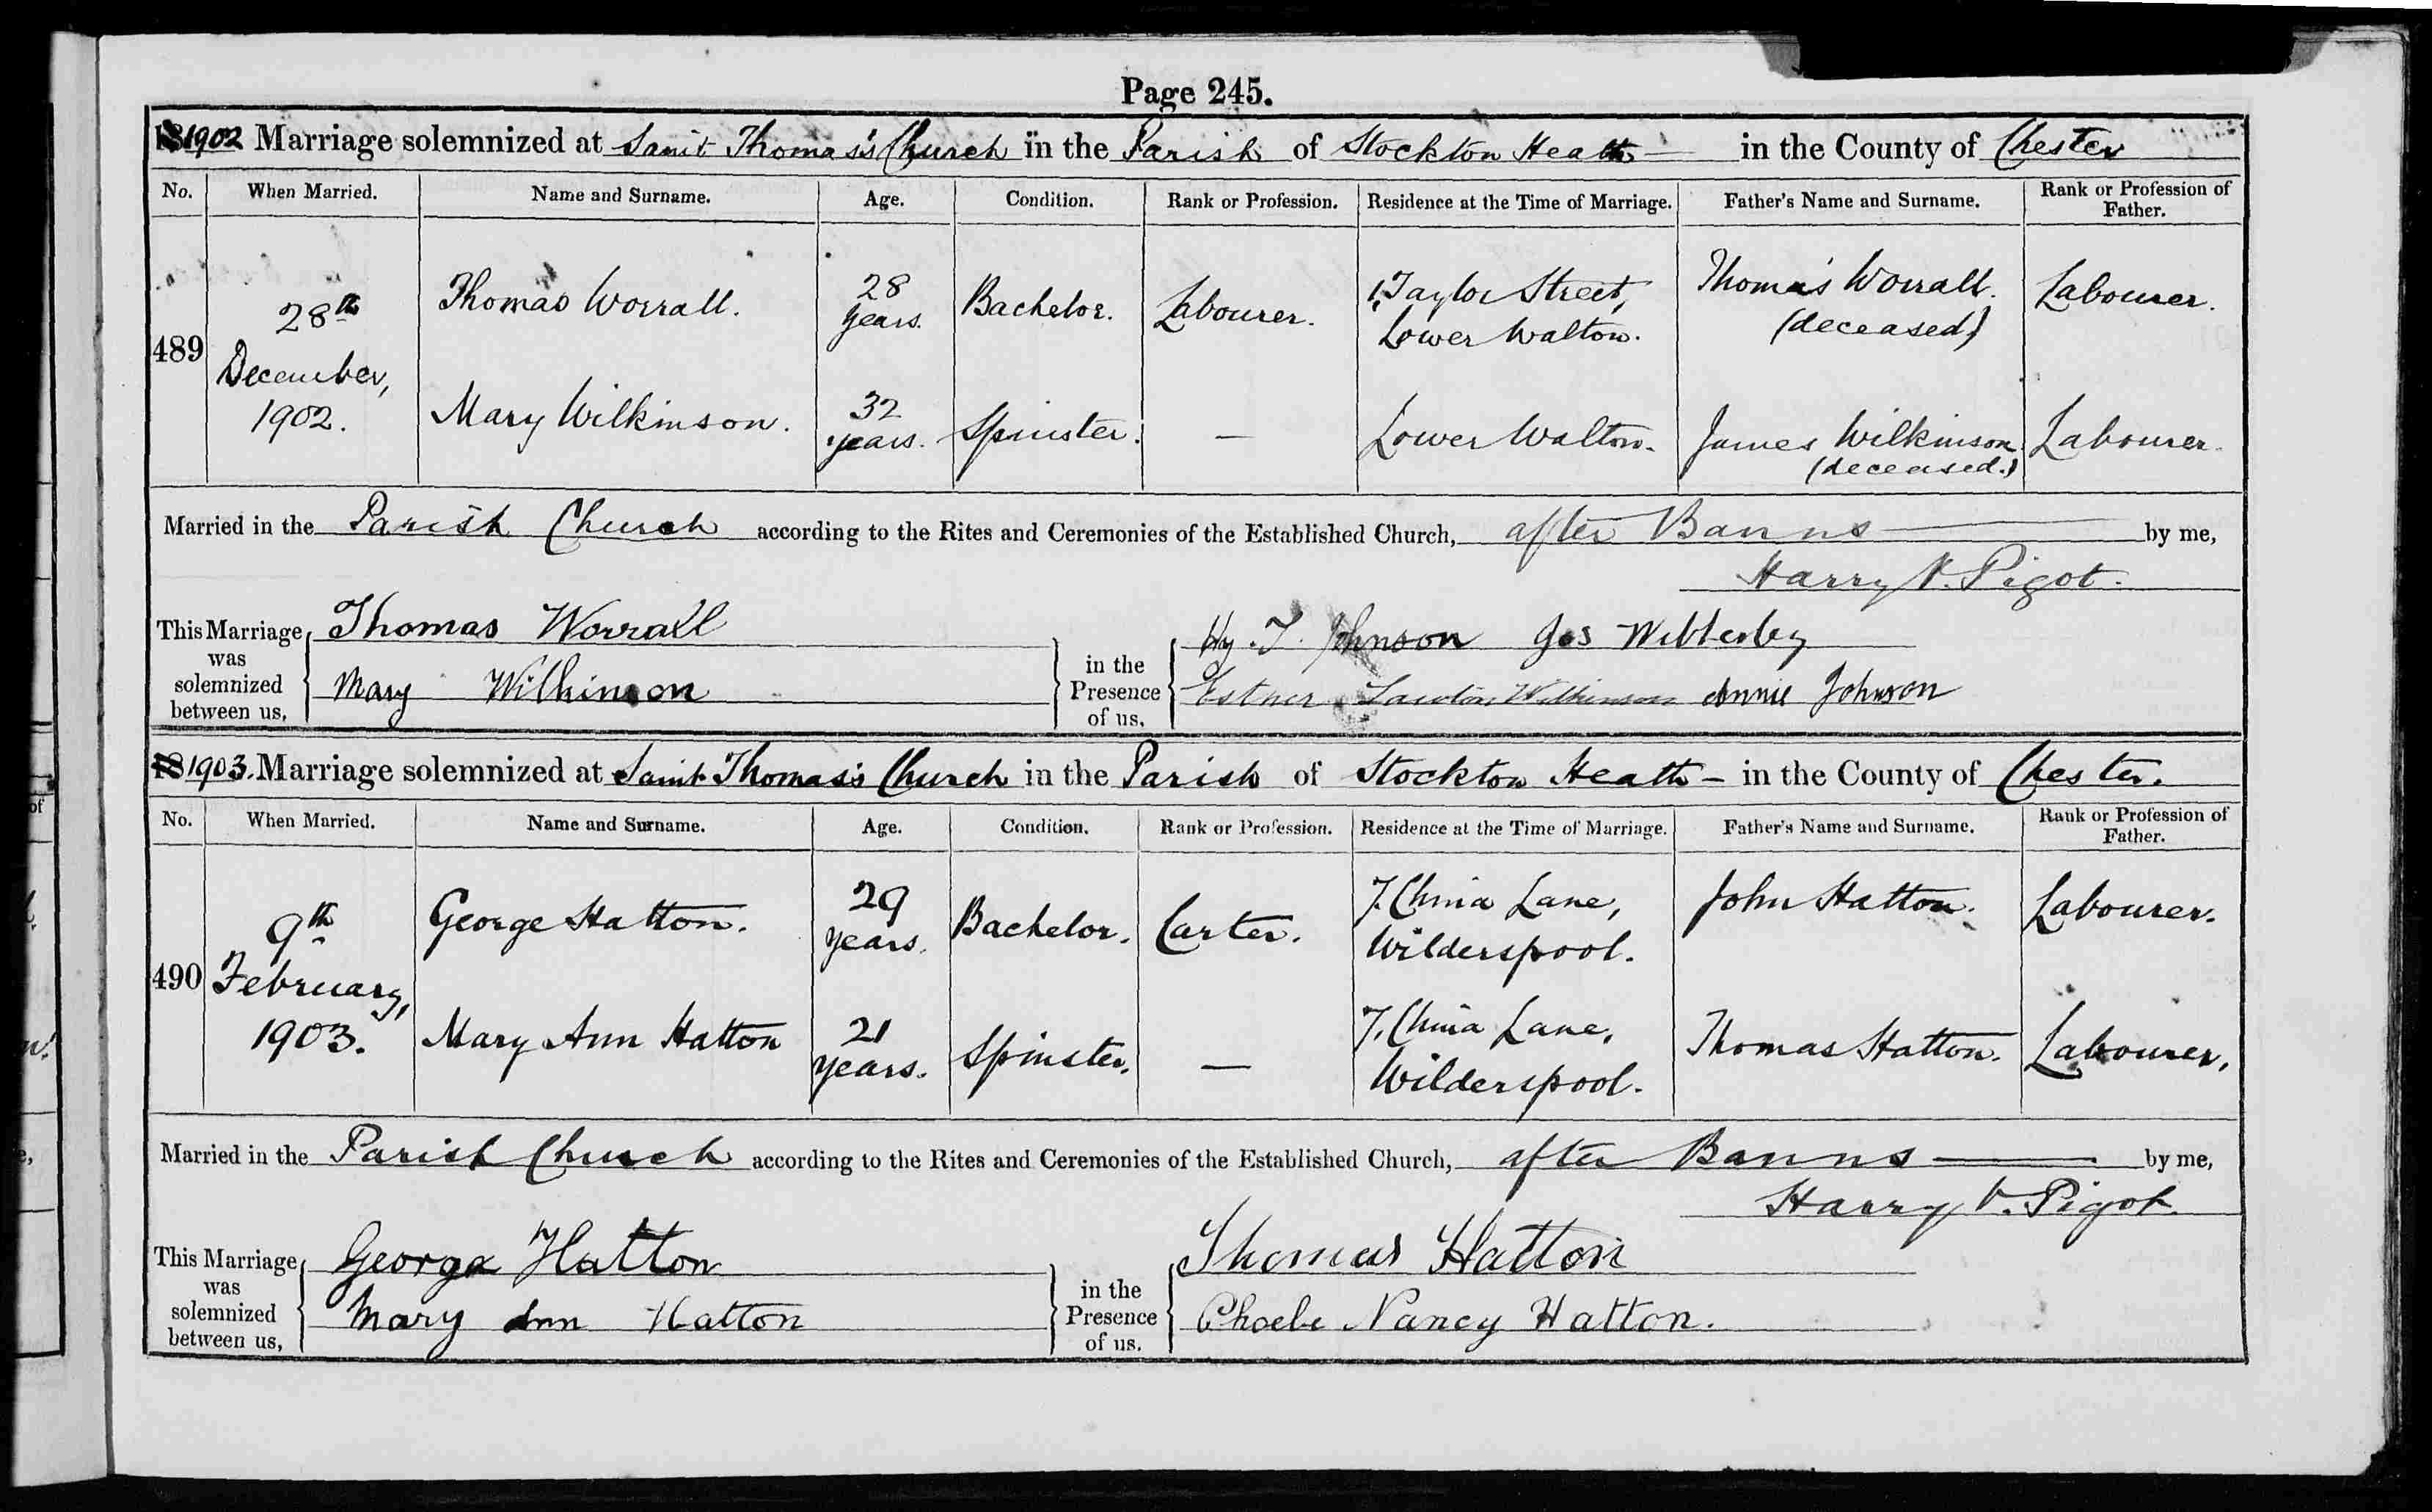 Page 245.
1902 Marriage solemnized at Saint Thomas's Church in the Parish of Stockton Heath in the County of Chester
No. When Married. Name and Surname. Age. Condition. Rank or Profession. Residence at the Time of Marriage. Father's Name and Surname. Rank or Profession of Father.
489 28th December, 1902. Thomas Worrall. 28 years. Bachelor. Labourer. 1, Taylor Street, Lower Walton. Thomas Worrall. (deceased) Labourer.
Mary Wilkinson. 32 years. Spinster. — Lower Walton. James Wilkinson (deceased.) Labourer.
Married in the Parish Church according to the Rites and Ceremonies of the Established Church, after Banns by me,
Harry V. Pigot.
This Marriage was solemnized between us, Thomas Worrall
Mary Wilkinson
in the Presence of us, Hy. T. Johnson Jos
Esther Wilkinson Annie Johnson
1903. Marriage solemnized at Saint Thomas's Church in the Parish of Stockton Heath – in the County of Chester.
No. When Married. Name and Surname. Age. Condition. Rank or Profession. Residence at the Time of Marriage. Father's Name and Surname. Rank or Profession of Father.
490 9th February, 1903. George Hatton. 29 years. Bachelor. Carter. 7. China Lane, Wilderspool. John Hatton. Labourer.
Mary Ann Hatton 21 years. Spinster. — 7. China Lane, Wilderspool. Thomas Hatton. Labourer.
Married in the Parish Church according to the Rites and Ceremonies of the Established Church, after Banns by me,
Harry V. Pigot.
This Marriage was solemnized between us, George Hatton
Mary Ann Hatton
in the Presence of us, Thomas Hatton
Phoebe Nancy Hatton.